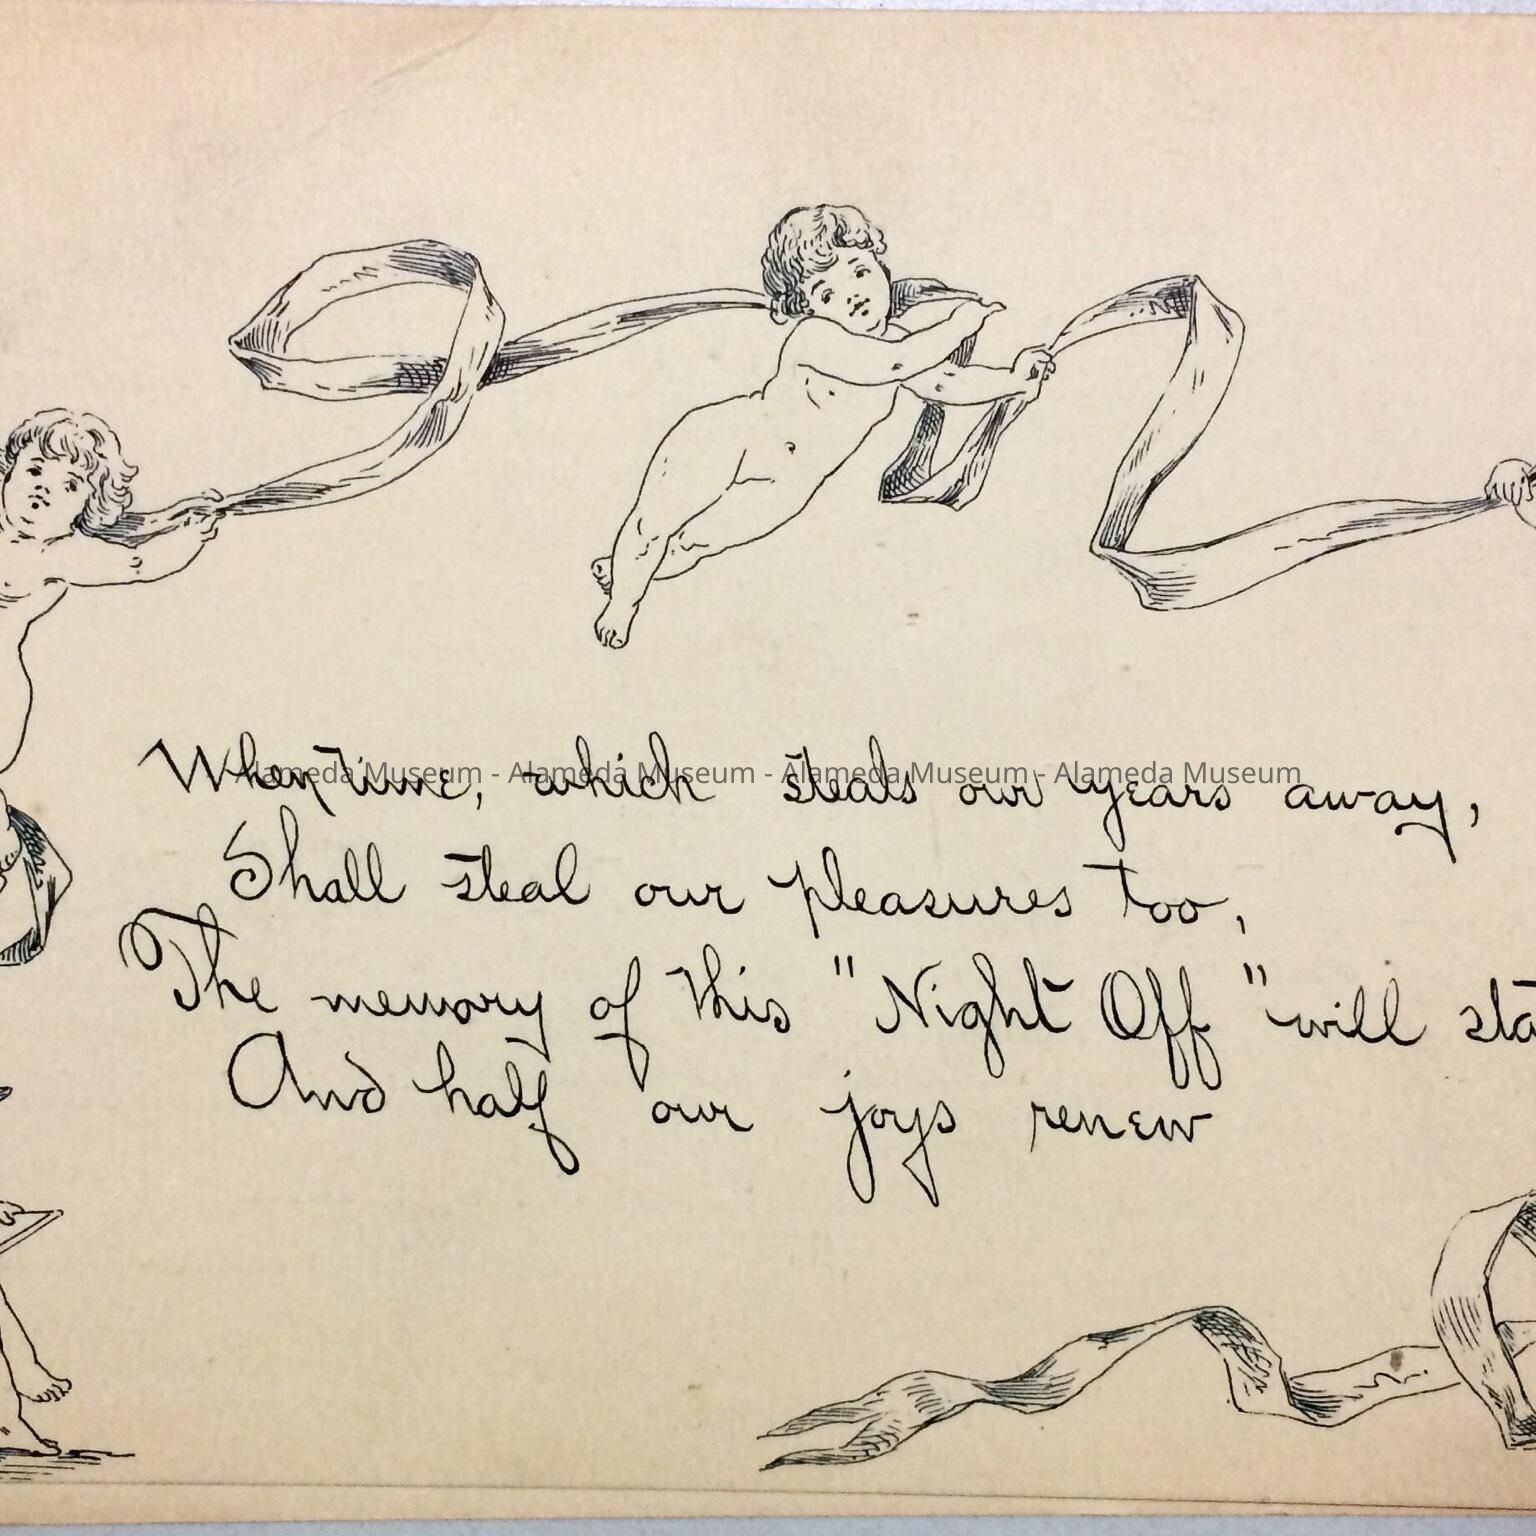 When time, which steals our years away,
Alameda Museum - Alameda Museum - Alameda Museum - Alameda Museum
Shall steal our pleasures too,
The memory of this "Night Off" will
And half our joys renew